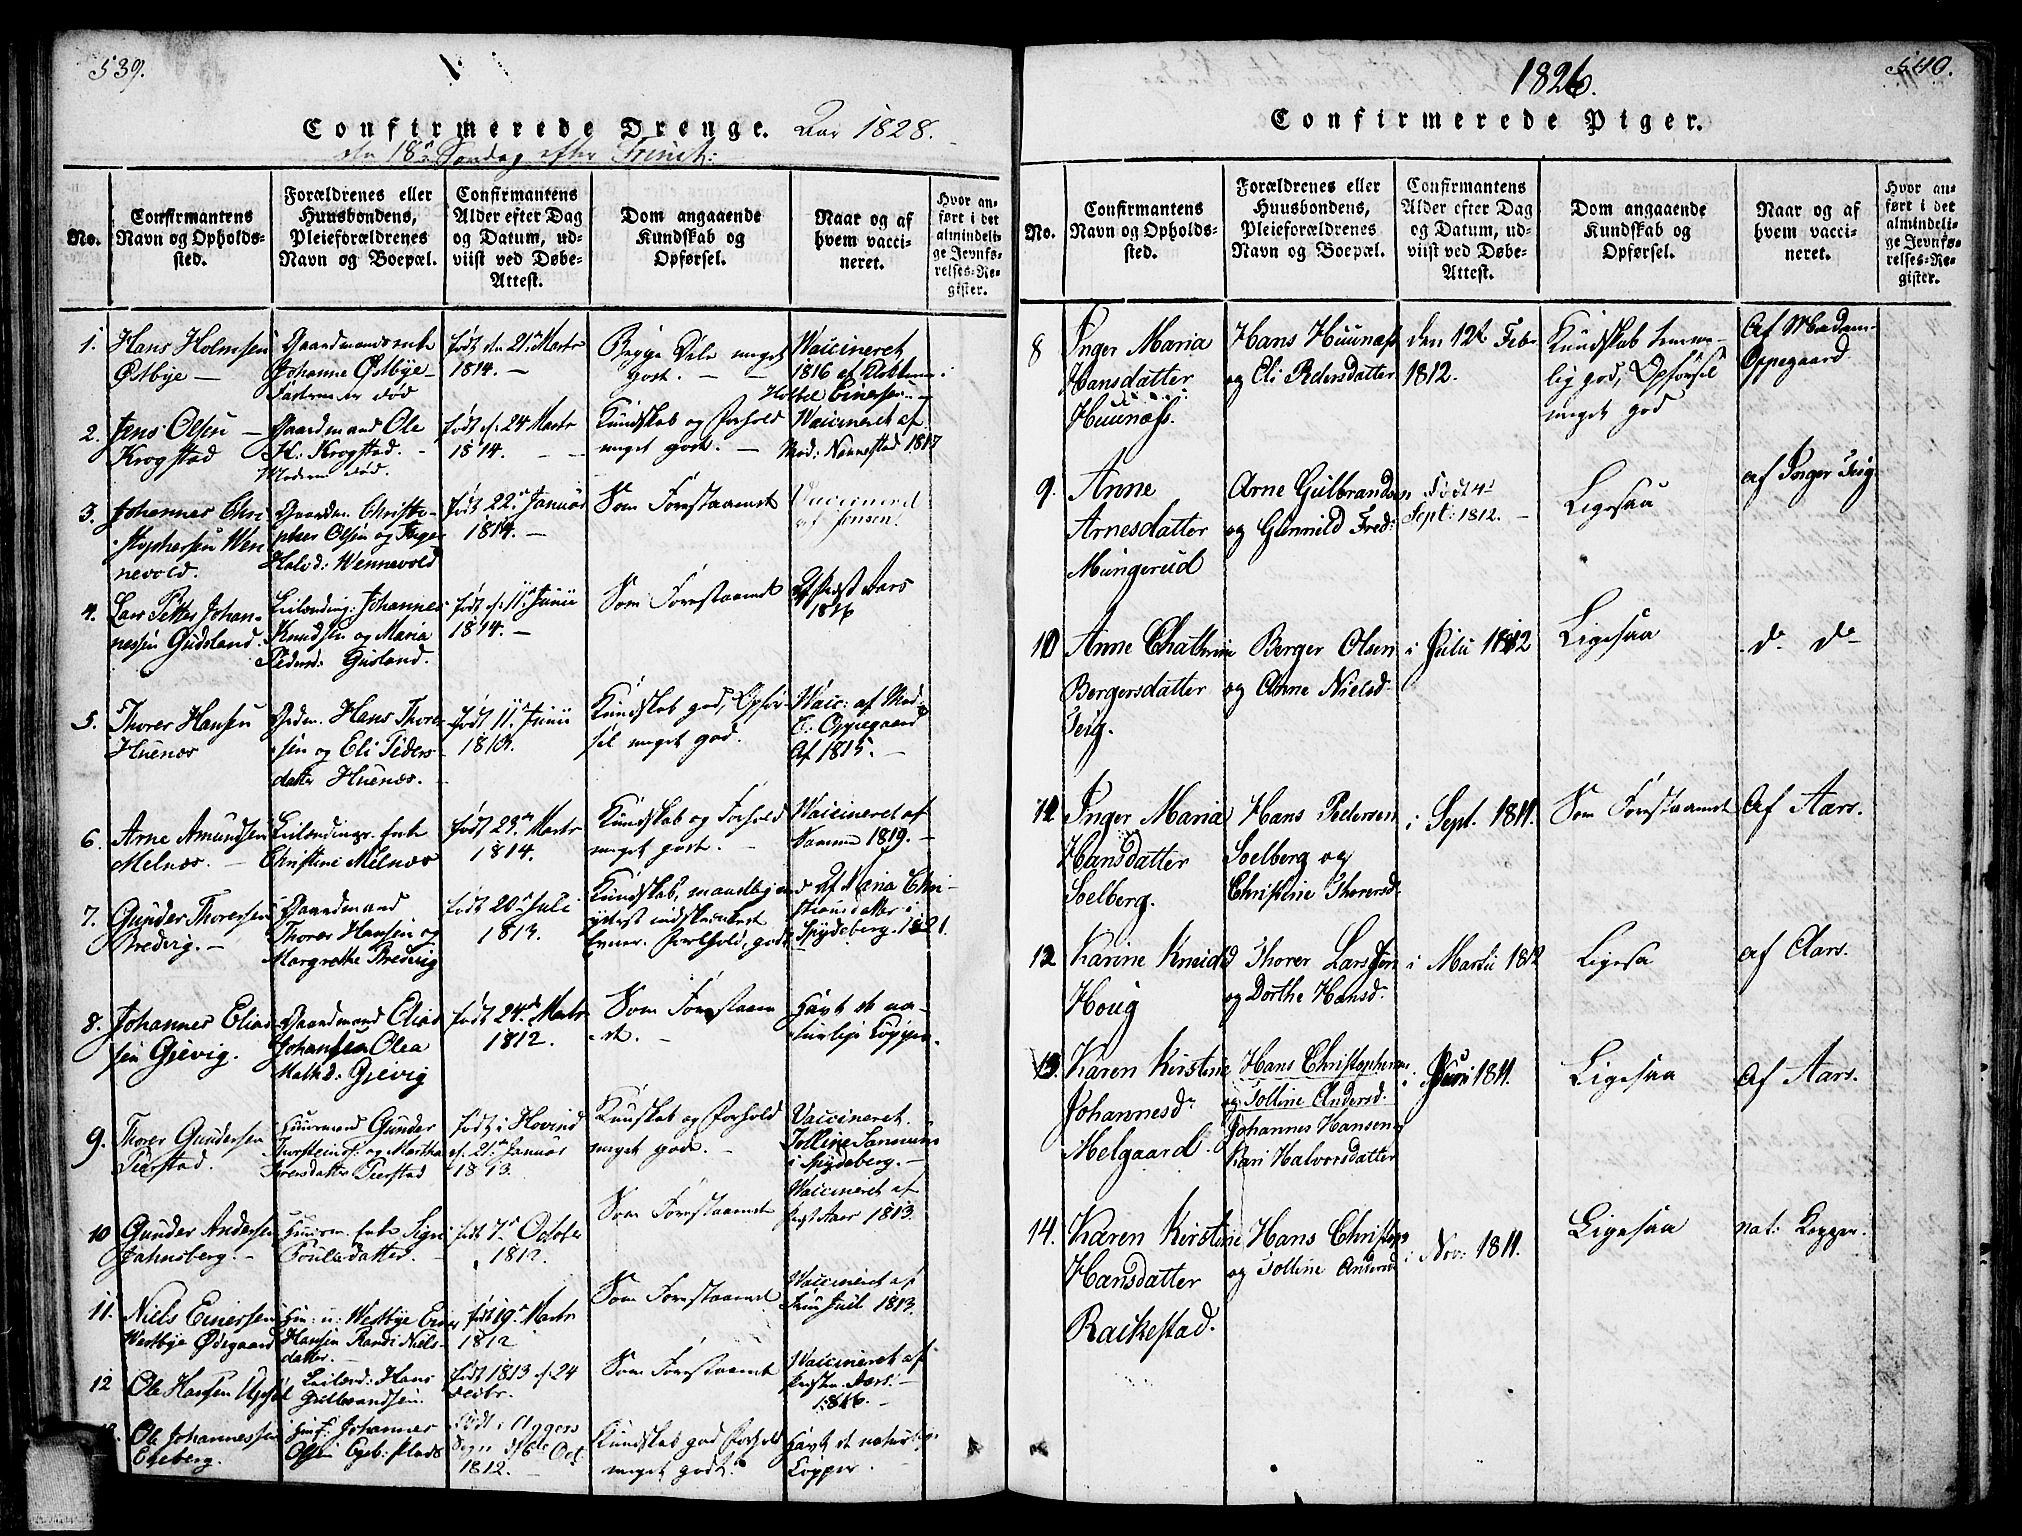 539.
Confirmerede Drenge. Aar 1828.
den 18de Søndag efter Trinit:
No.
Confirmantens Navn og Opholdssted.
Forældrenes eller Huusbondens, Pleieforældrenes Navn og Boepæl.
Confirmantens Alder efter Dag og Datum, udviist ved Døbe-Attest.
Dom angaaende Kundskab og Opførsel.
Naar og af hvem vaccineret.
Hvor anført i det almindelige Jevnførelses-Register.
1. Hans Holmsen Østbye
Gaardmands enke Johanne Østbye Faderen er død
født den 21. Marts 1814.
Begge Dele meget godt.
Vaccineret 1816 af
2. Jens Olsen Krogstad
Gaardmand Ole H: Krogstad. Moderen død.
født d. 24 Marts 1814.
Kundskab og Forhold meget godt.
Vaccineret af Mad: Nannestad 1817
3. Johannes Christophersen Wennevold.
Gaardm. Christopher Olsen og Inger Halvd: Wennevold
født 22. Januar 1814.
Som Forestaaende
Vaccineret af Jensen.
4. Lars Petter Johannessen Gudsland.
Leilending: Johannes Knudsen og Maria Pedersd: Gusland.
født d. 11. Junii 1814.
Som Forestaaende
Af Prest Aars 1816
5. Thorer Hansen Huenæs
Grdm. Hans Thoresen og Eli Pedersdatter Huenæs.
født 11. Junii 1810.
Kundskab god, Opførsel meget god.
Vacc: af Mad: E: Oppegaard Af 1815.
6. Arne Amundsen Melnæs.
Leilendings Enke Christine Melnæs
født 29. Marts 1814.
Kundskab og Forhold meget godt.
Vaccineret af 1819.
7. Gunder Thoressen Bredvig.
Gaardmand Thorer Hansen og Margrethe Bredvig
født 20. Juli 1813.
Kundskab, maadelig indskrænket Evner. Forhold, godt
Af Maria Christiansdatter i Spydeberg. 1821.
8. Johannes Eliassen Gjevig.
Gaardmand Elias Johansen Olea Mathd: Gjevig
født 24de Marts 1812.
Som Forestaaende.
Havt de naturlige Kopper.
9. Thorer Gundersen Tierstad.
Huusmand Gunder Torsteins. og Martha Iversdatter Tierstad
født i Hovind d. 21. Januar 1813.
Kundskab og Forhold meget godt.
Vaccineret. Tolline Sannum i Spydeberg.
10 Gunder Andersen Jahnsberg.
Huusm. Enke Sign Poulsdatter.
født 7. October 1812.
Som Forestaaende
Vaccineret af Prest Aars 1813.
11. Niels Einersen Westbye Ødegaard
Hm: u: Westbye Einer Hansen Randi Nielsdatter.
født 19. Marts 1812
Som Forestaaende
Vaccineret af 1813.
12 Ole Hansen
Leilend: Hans Gulbrandsen.
født 1813 d. 24 Decbr.
Som Forestaaende
Vaccineret af Aars 1816.
Ole Johannessen Egeberg.
Hmf: Johannes Olsen Egeb: Plads
Født i Aggers Sogn d. 6te Oct 1812.
Kundskab god Forhold meget godt.
Havt de naturlige Kopper.
540.
1826.
Confirmerede Piger.
No.
Confirmantens Navn og Opholdssted.
Forældrenes eller Huusbondens, Pleieforældrenes Navn og Boepæl.
Confirmantens Alder efter Dag og Datum, udviist ved Døbe-Attest.
Dom angaaende Kundskab og Opførsel.
Naar og af hvem vaccineret.
Hvor anført i det almindelige Jevnførelses-Register.
8 Inger Maria Hansdatter Huunæss.
Hans Huunæss og Eli Pedersdatter
den 12te Febr 1812.
Kundskab temmelig god, Opførsel meget god
Af Madam Oppegaard.
9. Anne Arnesdatter Mungerud
Arne Gulbrandsen og Gunnild Fred:
Født 4. Sept: 1812.
Ligesaa
af Inger Teig
10 Anne Chathrine Bergersdatter Teig.
Berger Olsen og Anne Nielsd
i Julii 1812
Ligesaa
do do
11 Inger Maria Hansdatter Soelberg.
Hans Pedersen Soelberg og Christine Thorersd
i Sept. 1811.
Som Forestaaende
Af Aars.
12 Karine Houg
Thorer Larssen og Dorthe Hansd.
i Martii 1812
Ligesa
af Aars.
13. Karen Kirstine Johannesd. Melgaard.
Hans Christophersen og Tolline Andersd: Johannes Hansen Kari Halvorsdatter
i Juni 1811.
Ligesaa
Af Aars.
14. Karen Kirstine Hansdatter Rackestad.
Hans Christoph og Tolline Andersd
i Nov: 1811.
Ligesaa
nat: Kopper.